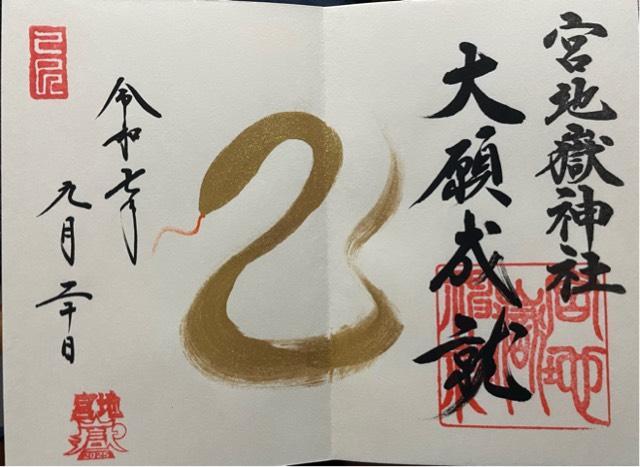 宮地嶽神社
大願成就
令和七年
九月二十日
宮地
嶽
2025